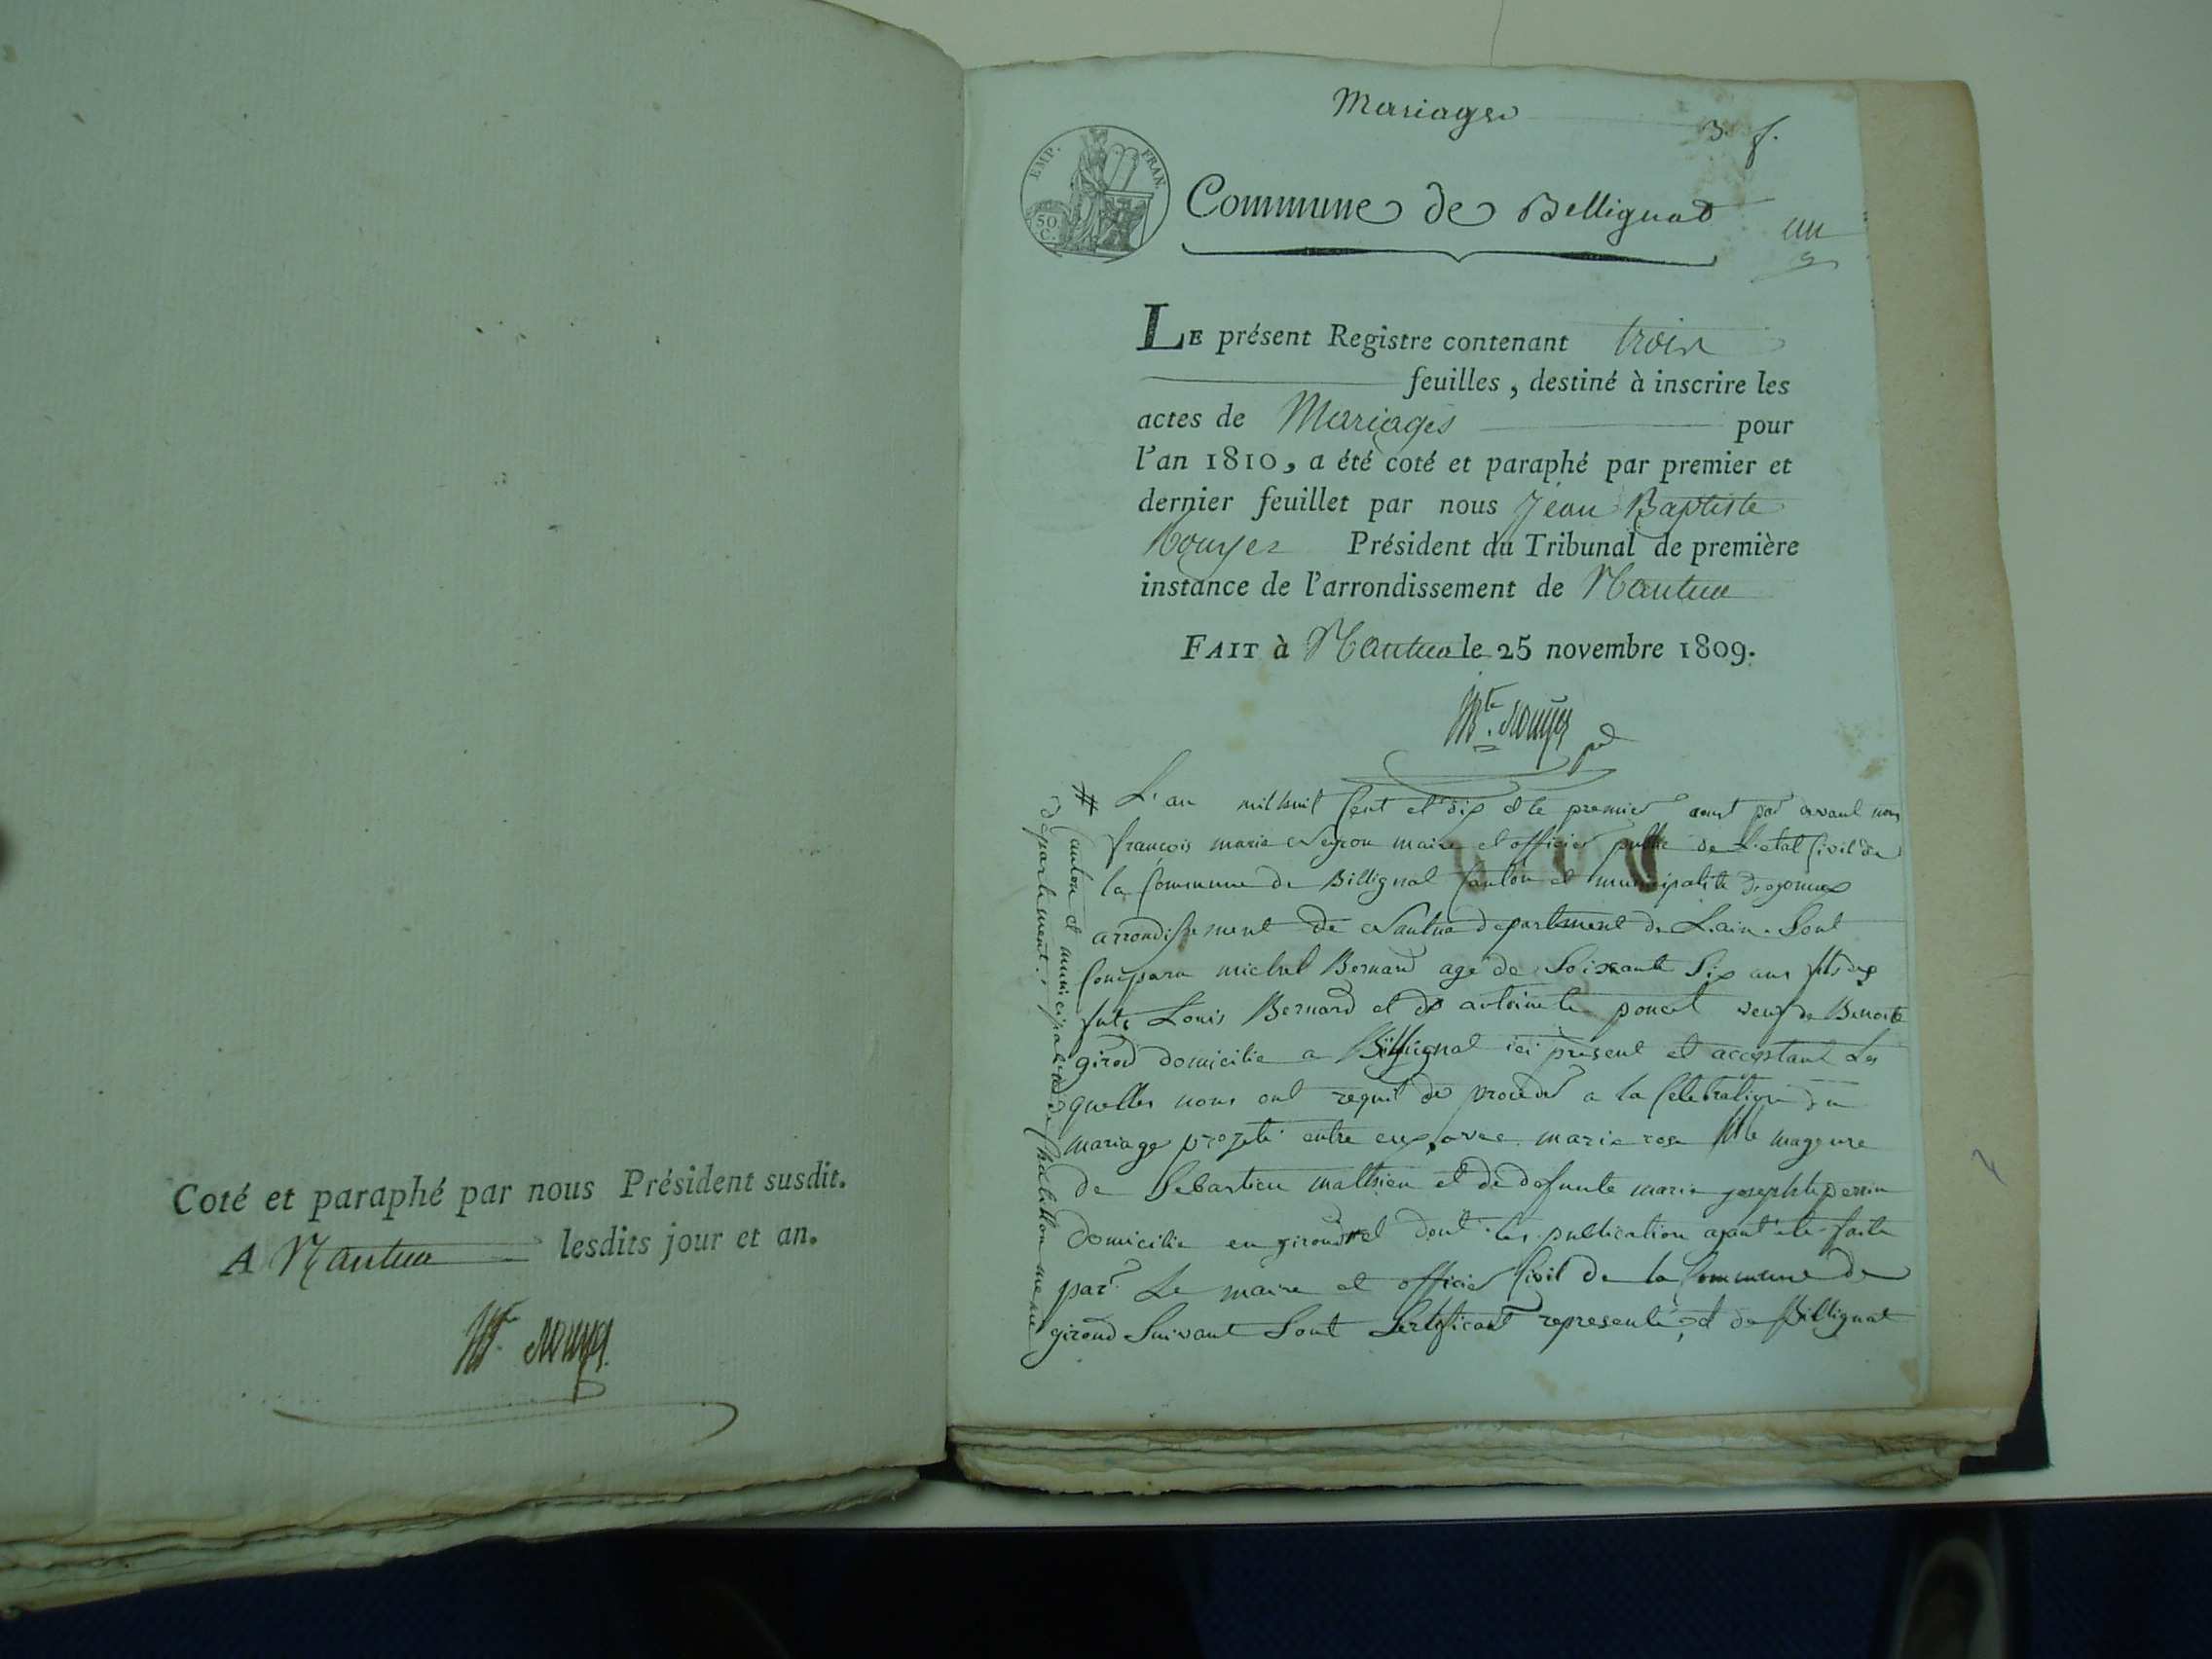 Coté et paraphé par nous Président susdit.
A Nantua lesdits jour et an.
Bte Rouyer
Mariages
3 f.
EMP. FRAN.
50 C.
Commune de Bellignat
un
LE présent Registre contenant trois
feuilles, destiné à inscrire les
actes de Mariages pour
l'an 1810, a été coté et paraphé par premier et
dernier feuillet par nous Jean Baptiste
Rouyer Président du Tribunal de première
instance de l'arrondissement de Nantua
FAIT à Nantua le 25 novembre 1809.
Bte Rouyer
L'an mil huit cent et dix et le premier aout par avant nous
françois marie Neyron maire et officier public de L'etat Civil de
la Commune de Billignat Canton et municipalité d'oyonnax
arrondissement de Nantua departement de L'ain. Sont
Comparu michel Bernard agé de Soixante Six ans fils des
futs Louis Bernard et de antoinette poncet veuf de Benoite
girod domicilie a Billignat ici present et acceptant Les
quelles nous ont requit de proceder a la Celebration du
mariage projeté entre eux, avec marie rose fille mageure
de Sebastien matthieu et de defunte marie josephte perrin
domicilie en girond et dont les publication ayant eté faite
par Le maire et officier Civil de la Commune de
girond Suivant Sont Sertificant representé, et de Billignat
# Canton et municipalité de Chatillon meme
departement.